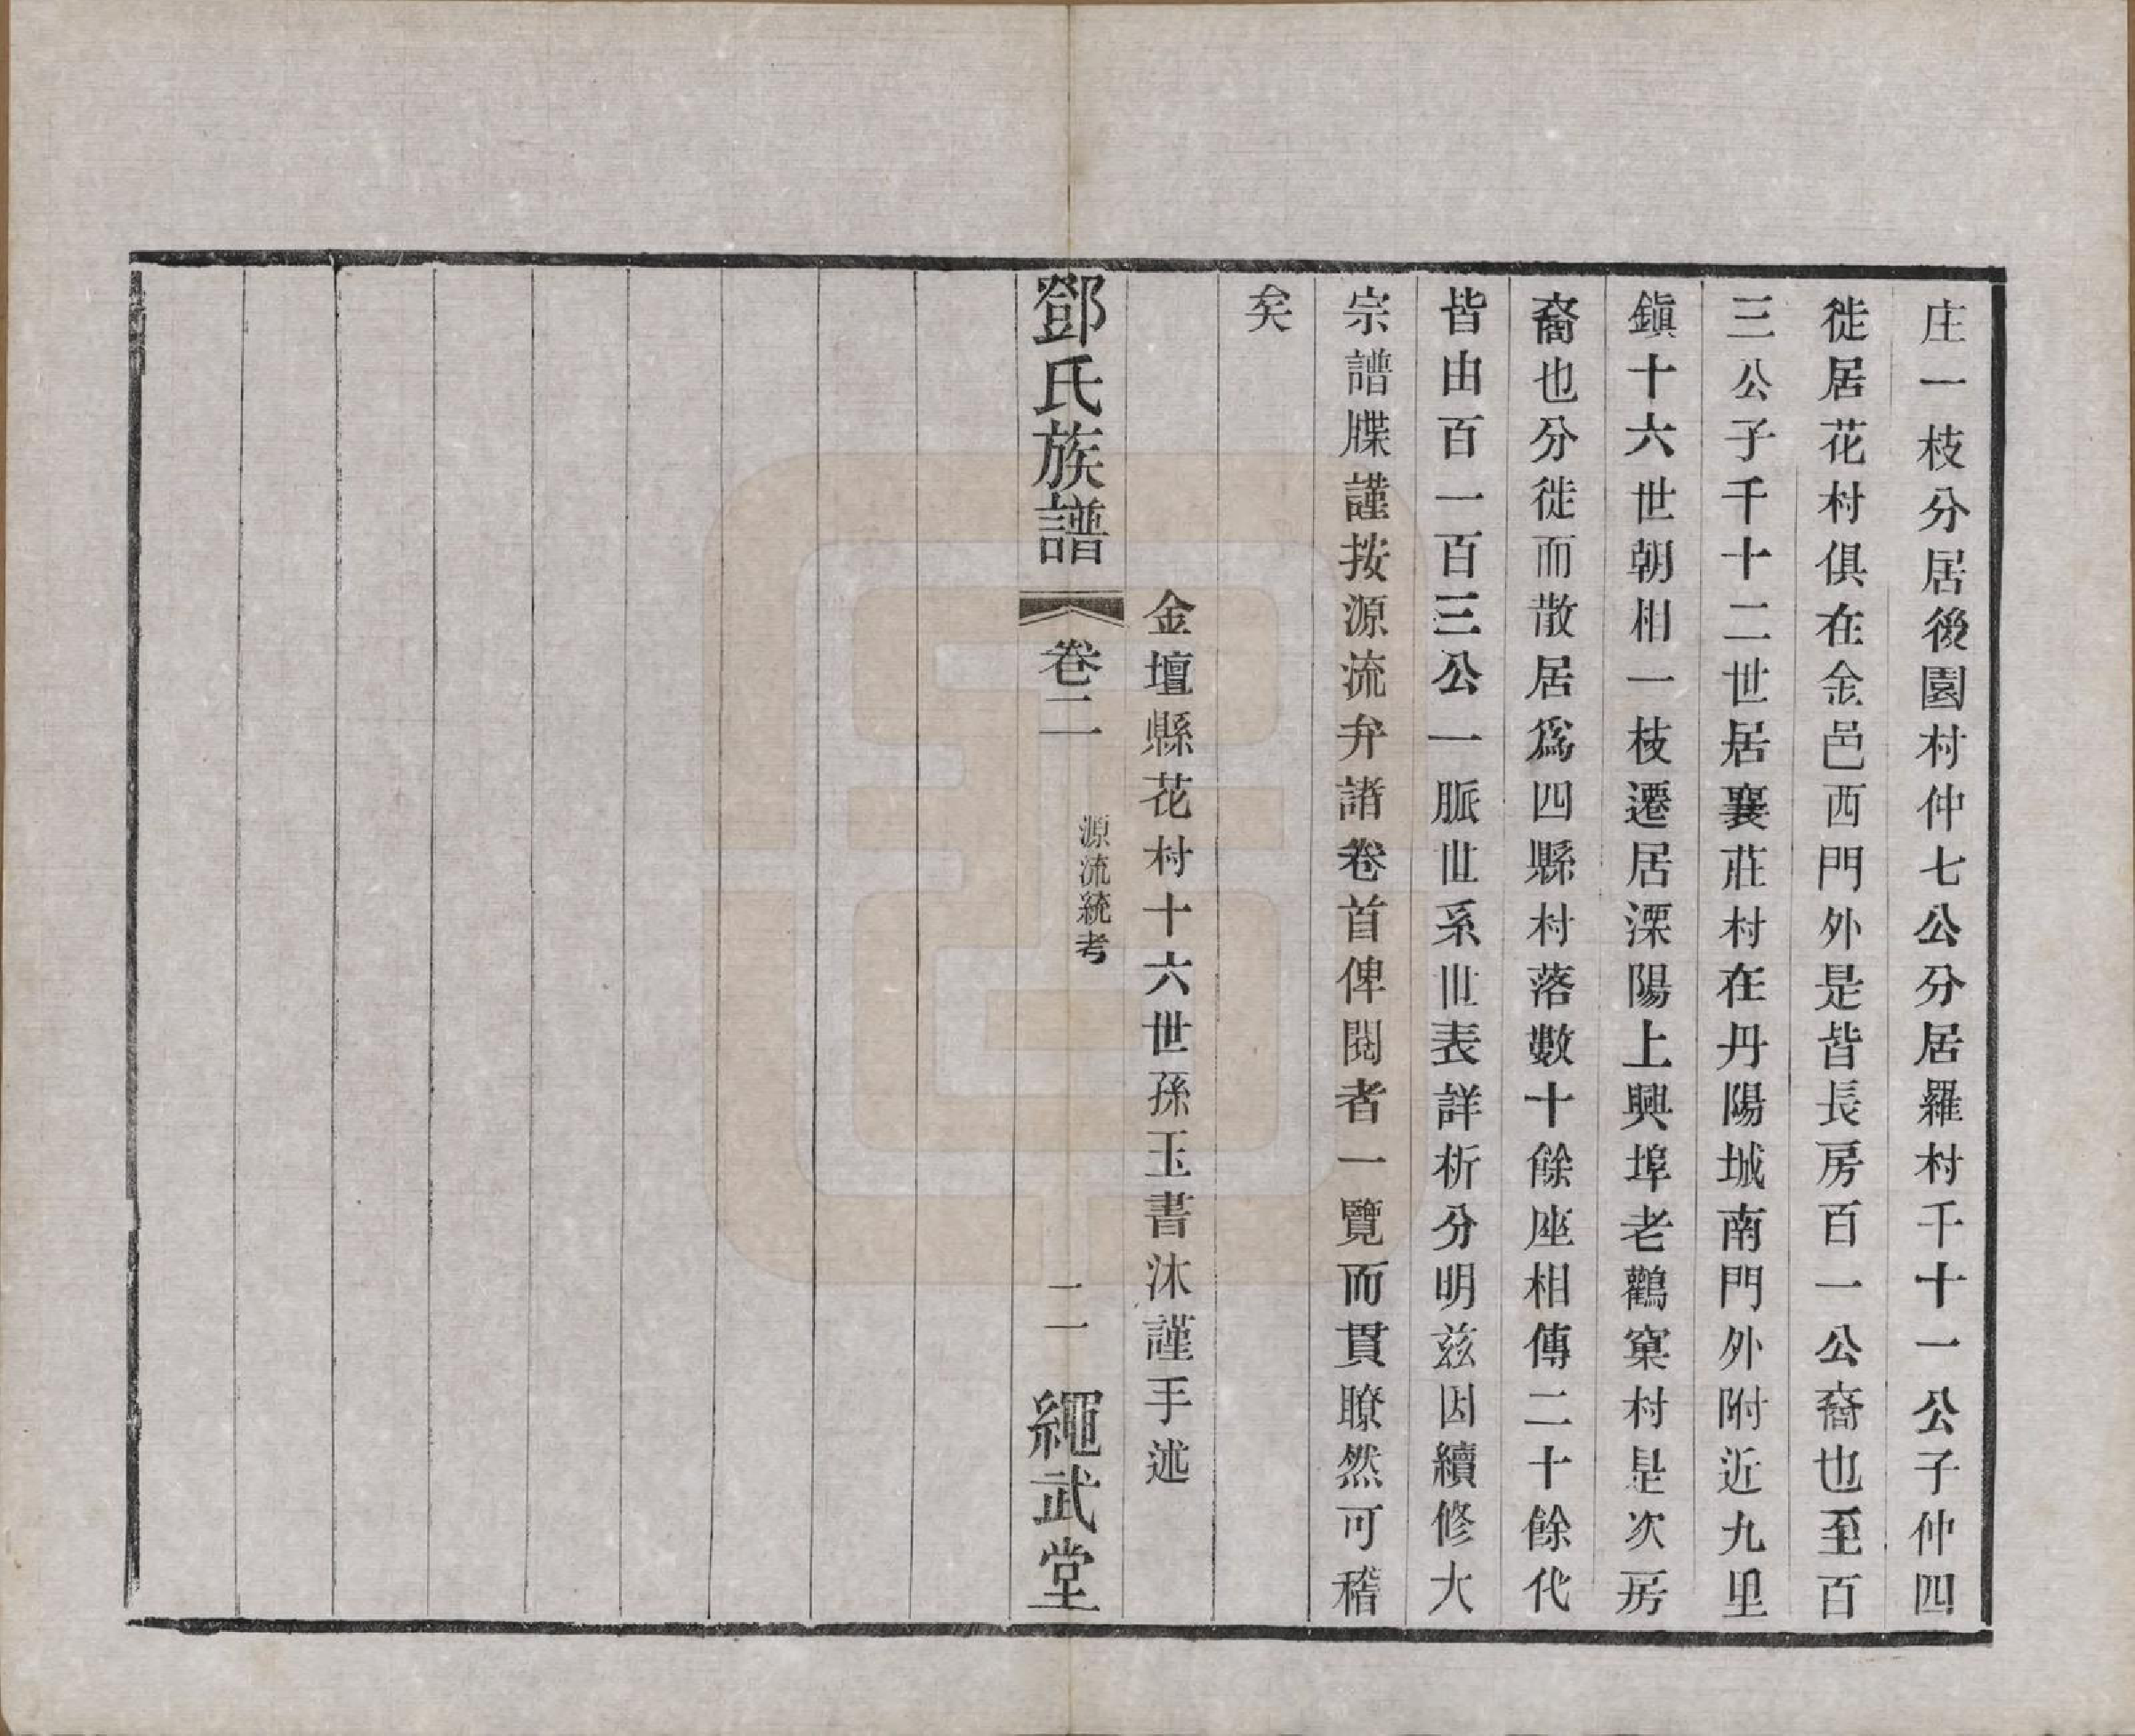 庄一枝分居後園村仲七公分居羅村千十一公子仲四
徙居花村俱在金邑西門外是皆長房百一公裔也至百
三公子千十二世居襄莊村在丹陽城南門外附近九里
鎭十六世朝相一枝遷居溧陽上興埠老鸛窠村是次房
裔也分徙而散居爲四縣村落數十餘座相傳二十餘代
皆由百一百三公一脈世系世表詳析分明茲因續修大
宗譜牒謹按源流弁諸卷首俾閱者一覽而貫瞭然可稽
矣
金壇縣花村十六世孫玉書沐謹手述
鄧氏族譜 卷二 源流統考 二 繩武堂